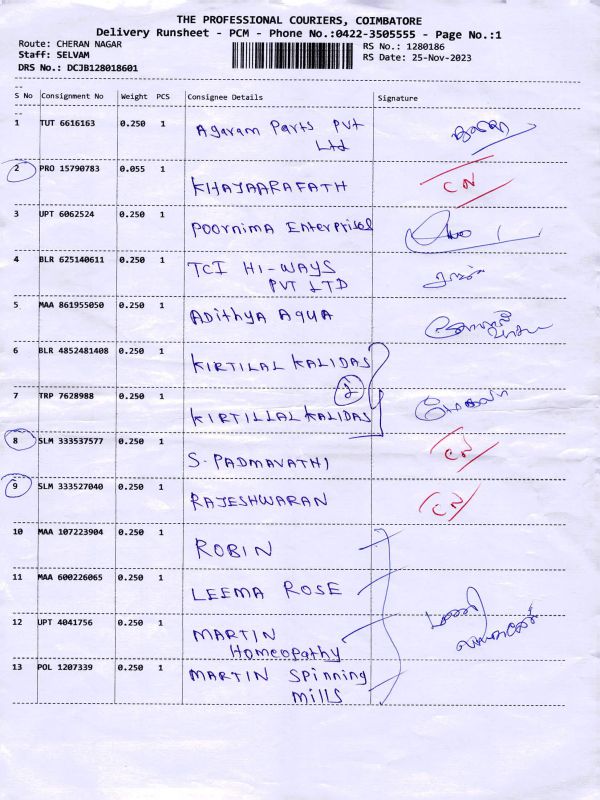 THE PROFESSIONAL COURIERS, COIMBATORE
Delivery Runsheet - PCM - Phone No.:0422-3505555 - Page No.:1
Route: CHERAN NAGAR RS No.: 1280186
Staff: SELVAM RS Date: 25-Nov-2023
DRS No.: DCJB128018601
S No Consignment No Weight PCS Consignee Details Signature
1 TUT 6616163 0.250 1 Agaram Parts Pvt
Ltd
2 PRO 15790783 0.055 1 KHAJAARAFATH CN
3 UPT 6062524 0.250 1 Poornima Enterprises
4 BLR 625140611 0.250 1 TCI HI-WAYS
PVT LTD
5 MAA 861955050 0.250 1 Adithya Aqua
6 BLR 4852481408 0.250 1 KIRTILAL KALIDAS
2
7 TRP 7628988 0.250 1 KIRTILLAL KALIDAS
8 SLM 333537577 0.250 1 S.PADMAVATHI CN
9 SLM 333527040 0.250 1 RAJESHWARAN CN
10 MAA 107223904 0.250 1 ROBIN
11 MAA 600226065 0.250 1 LEEMA ROSE
12 UPT 4041756 0.250 1 MARTIN
Homeopathy
13 POL 1207339 0.250 1 MARTIN Spinning
mills